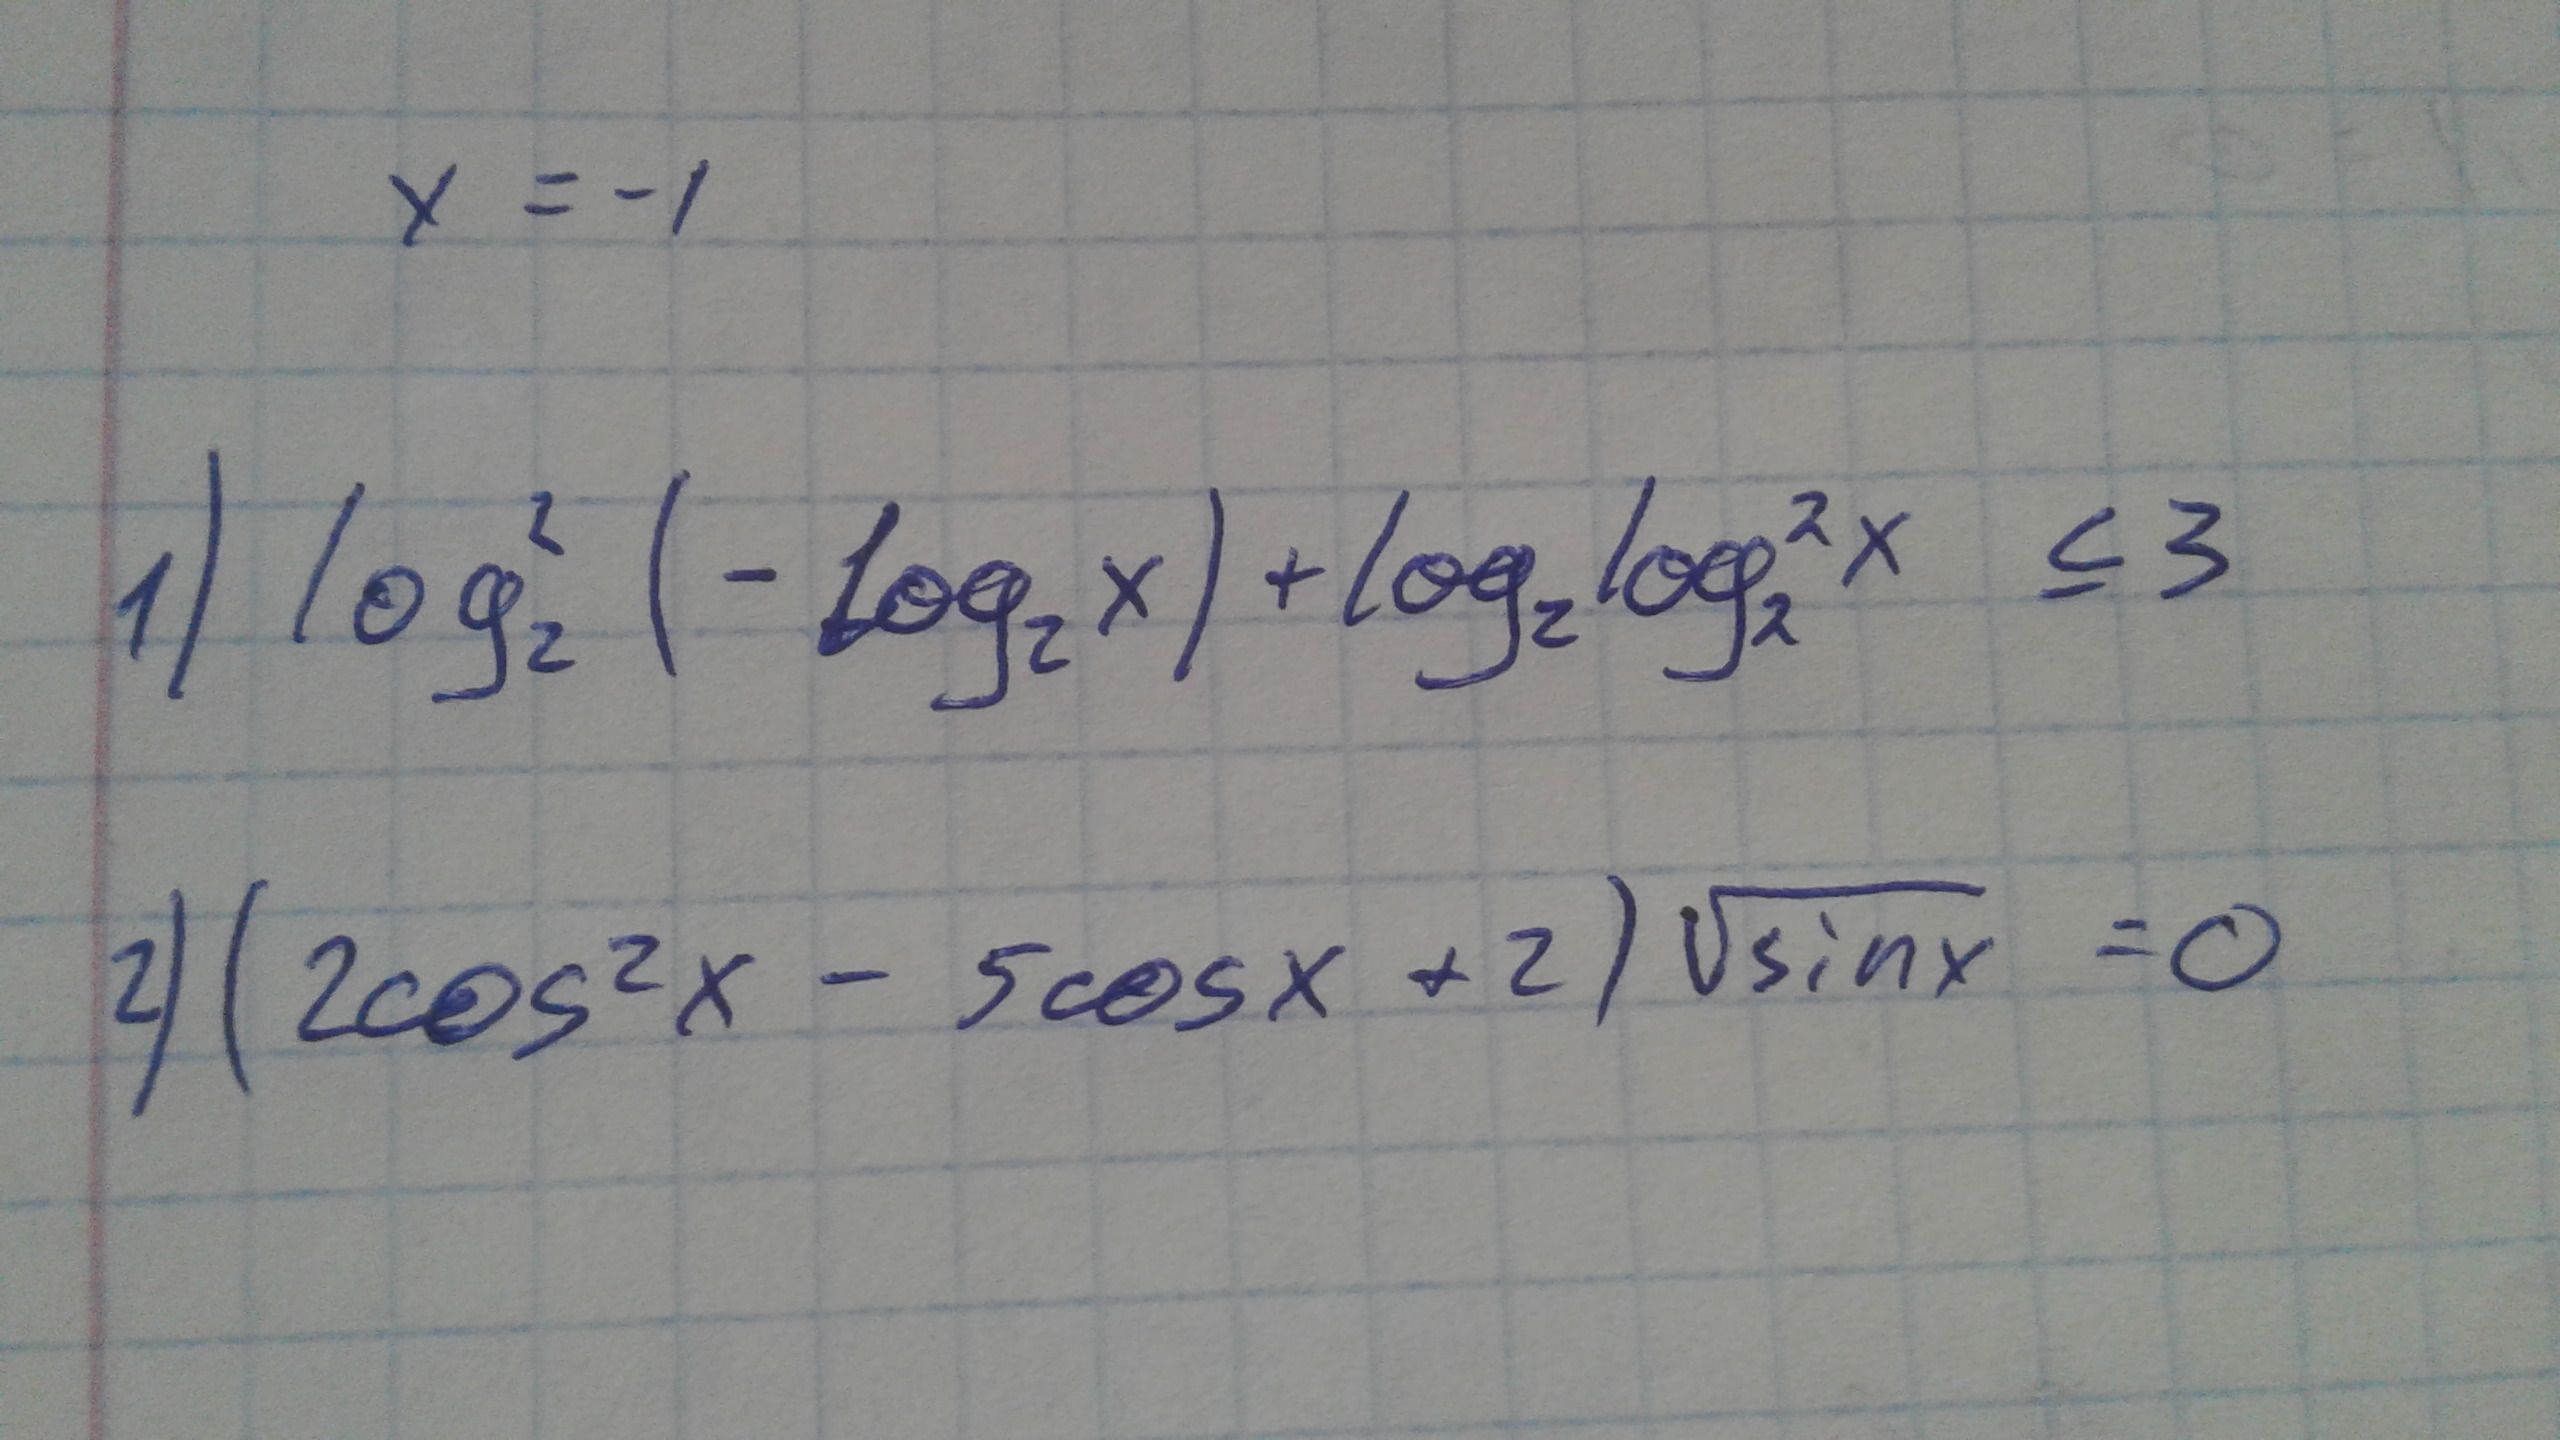 x = -1
1) log₂² (-log₂ x) + log₂ log₂² x ≤ 3
2) (2cos²x - 5cosx + 2) √sinx = 0